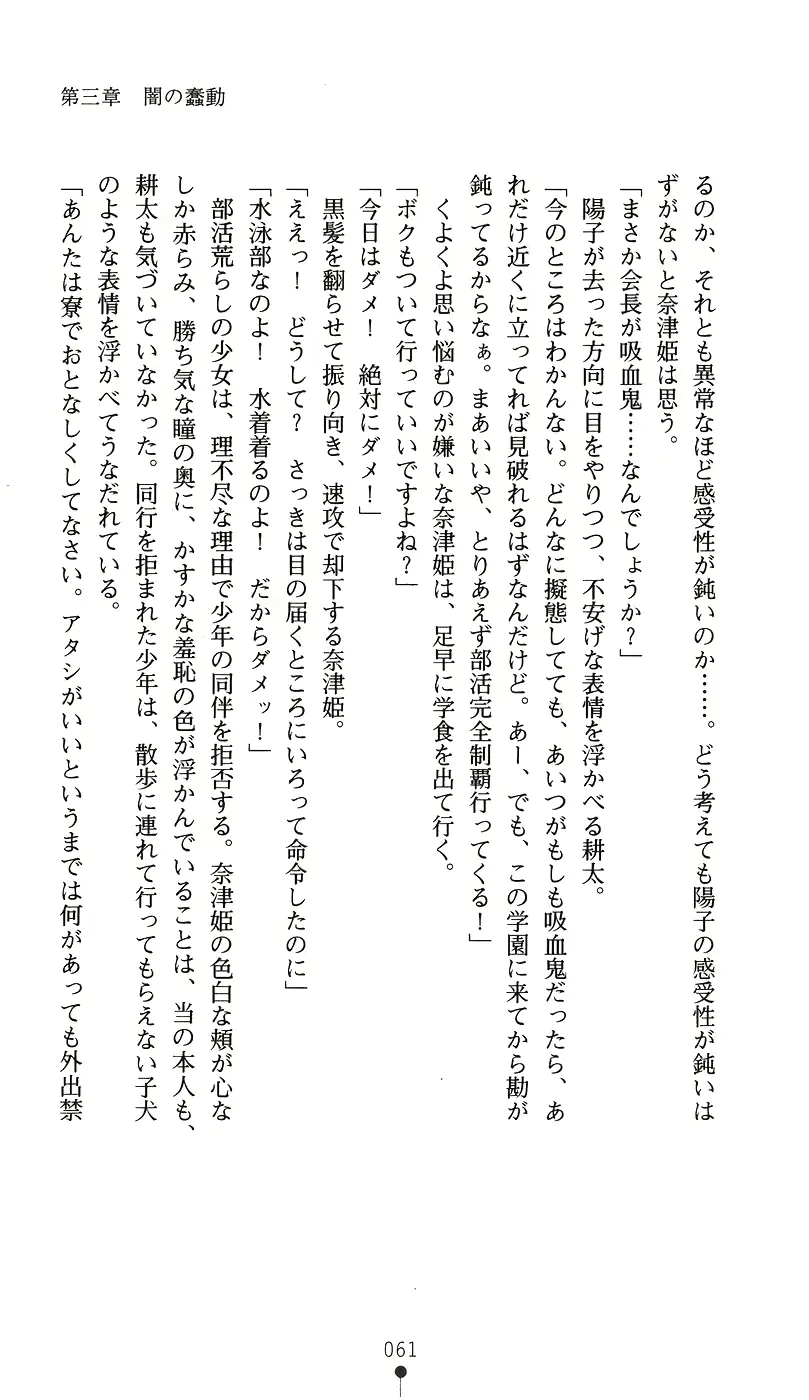 第三章　闇の蠢動
るのか、それとも異常なほど感受性が鈍いのか……。どう考えても陽子の感受性が鈍いは
ずがないと奈津姫は思う。
「まさか会長が吸血鬼……なんでしょうか？」
陽子が去った方向に目をやりつつ、不安げな表情を浮かべる耕太。
「今のところはわかんない。どんなに擬態してても、あいつがもしも吸血鬼だったら、あ
れだけ近くに立ってれば見破れるはずなんだけど。あー、でも、この学園に来てから勘が
鈍ってるからなぁ。まあいいや、とりあえず部活完全制覇行ってくる！」
くよくよ思い悩むのが嫌いな奈津姫は、足早に学食を出て行く。
「ボクもついて行っていいですよね？」
「今日はダメ！　絶対にダメ！」
黒髪を翻らせて振り向き、速攻で却下する奈津姫。
「ええっ！　どうして？　さっきは目の届くところにいろって命令したのに」
「水泳部なのよ！　水着着るのよ！　だからダメッ！」
部活荒らしの少女は、理不尽な理由で少年の同伴を拒否する。奈津姫の色白な頬が心な
しか赤らみ、勝ち気な瞳の奥に、かすかな羞恥の色が浮かんでいることは、当の本人も、
耕太も気づいていなかった。同行を拒まれた少年は、散歩に連れて行ってもらえない子犬
のような表情を浮かべてうなだれている。
「あんたは寮でおとなしくしてなさい。アタシがいいというまでは何があっても外出禁
061